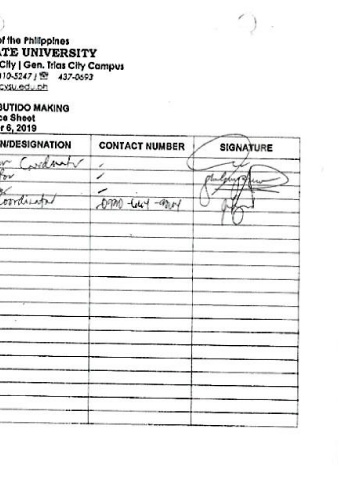 of the Philippines
ATE UNIVERSITY
City | Gen. Trias City Campus
10-5247 / ☏ 437-0693
cvsu.edu.ph
BUTIDO MAKING
ce Sheet
r 6, 2019
N/DESIGNATION CONTACT NUMBER SIGNATURE
Coordinator
tor
Coordinator